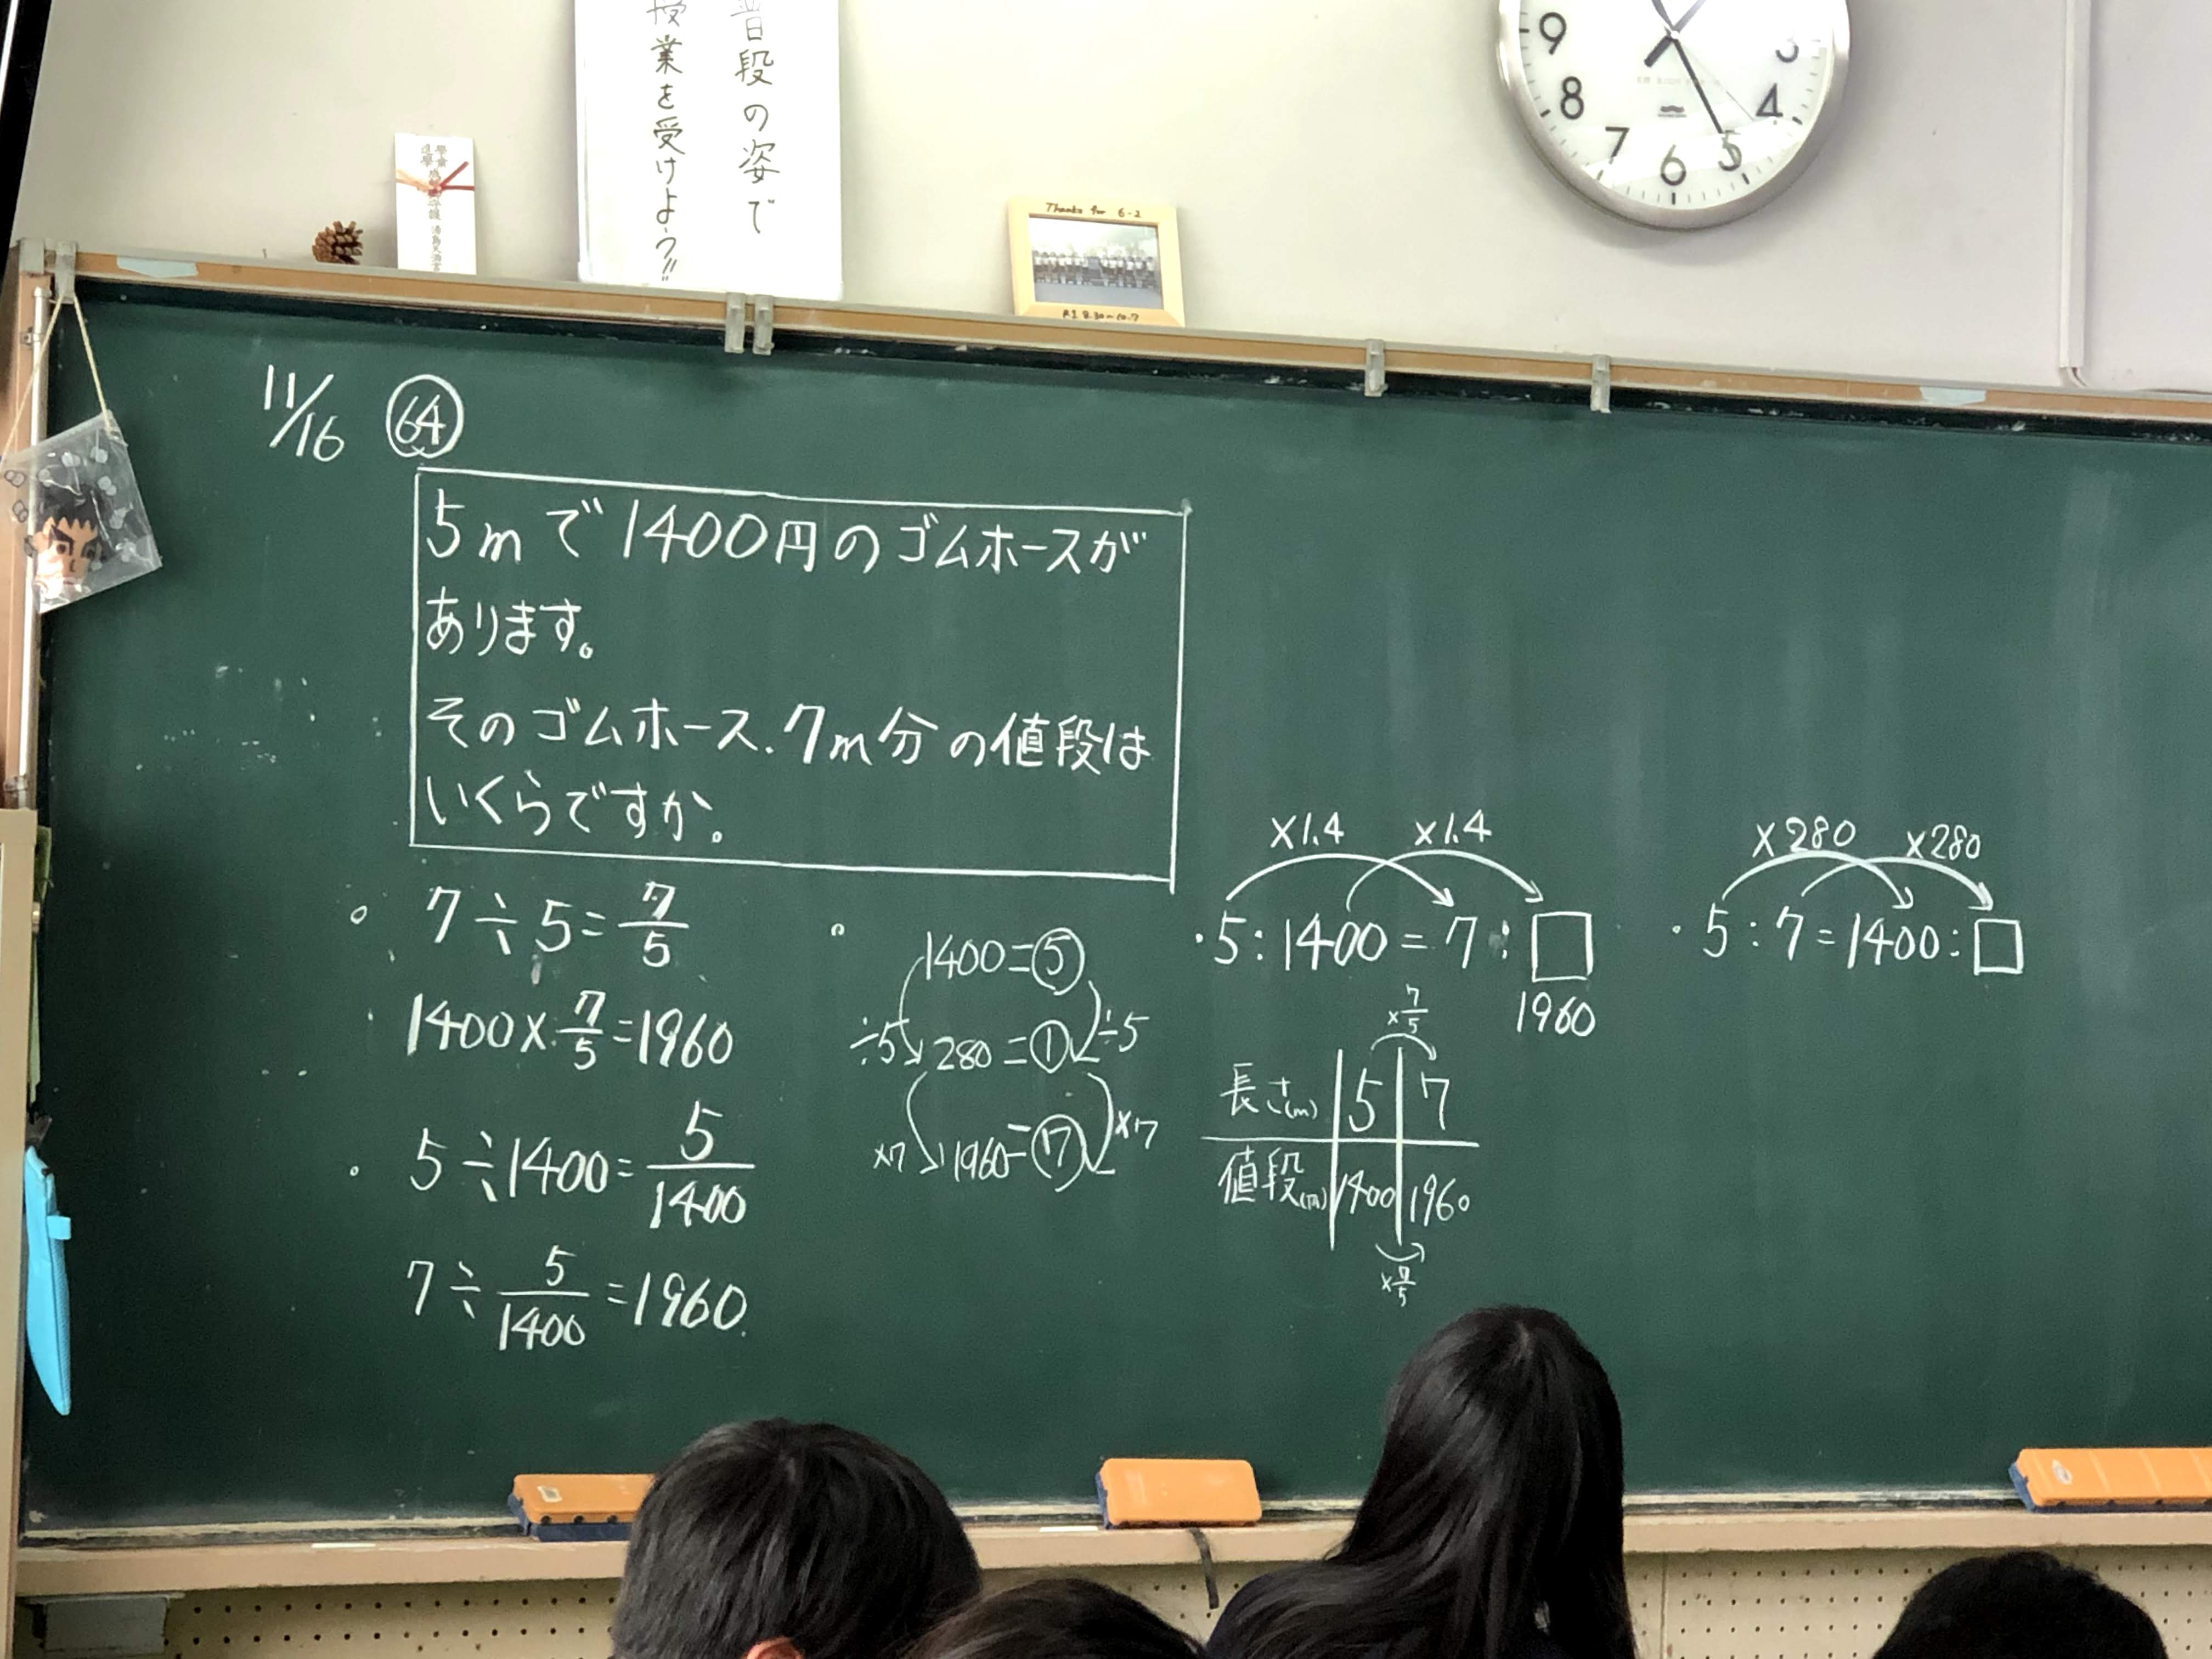 普段の姿で
授業を受けよう!!
Thanks for 6-2
9
8
7
6
5
4
3
11/16 64
5mで1400円のゴムホースが
あります。
そのゴムホース.7m分の値段は
いくらですか。
7÷5=7/5
1400×7/5=1960
5÷1400=5/1400
7÷5/1400=1960
1400=⑤
÷5 280=① ÷5
×7 1960=⑦ ×7
×1.4 ×1.4
・5:1400=7:□
1960
×7/5
長さ(m) 5 7
値段(円) 1400 1960
×7/5
×280 ×280
・5:7=1400:□